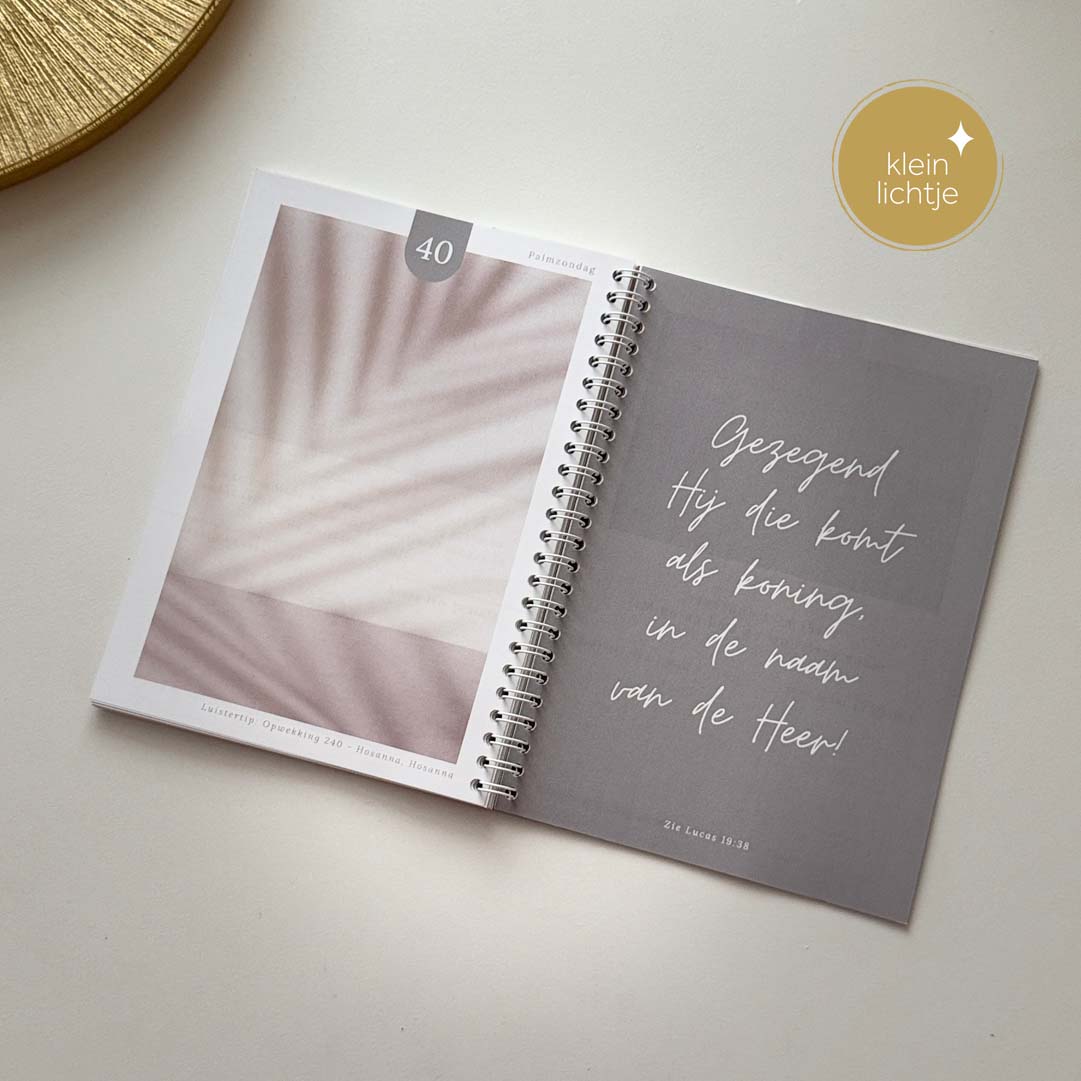 klein
lichtje
40
Palmzondag
Luistertip: Opwekking 240 - Hosanna, Hosanna
Gezegend
Hij die komt
als koning,
in de naam
van de Heer!
Zie Lucas 19:38